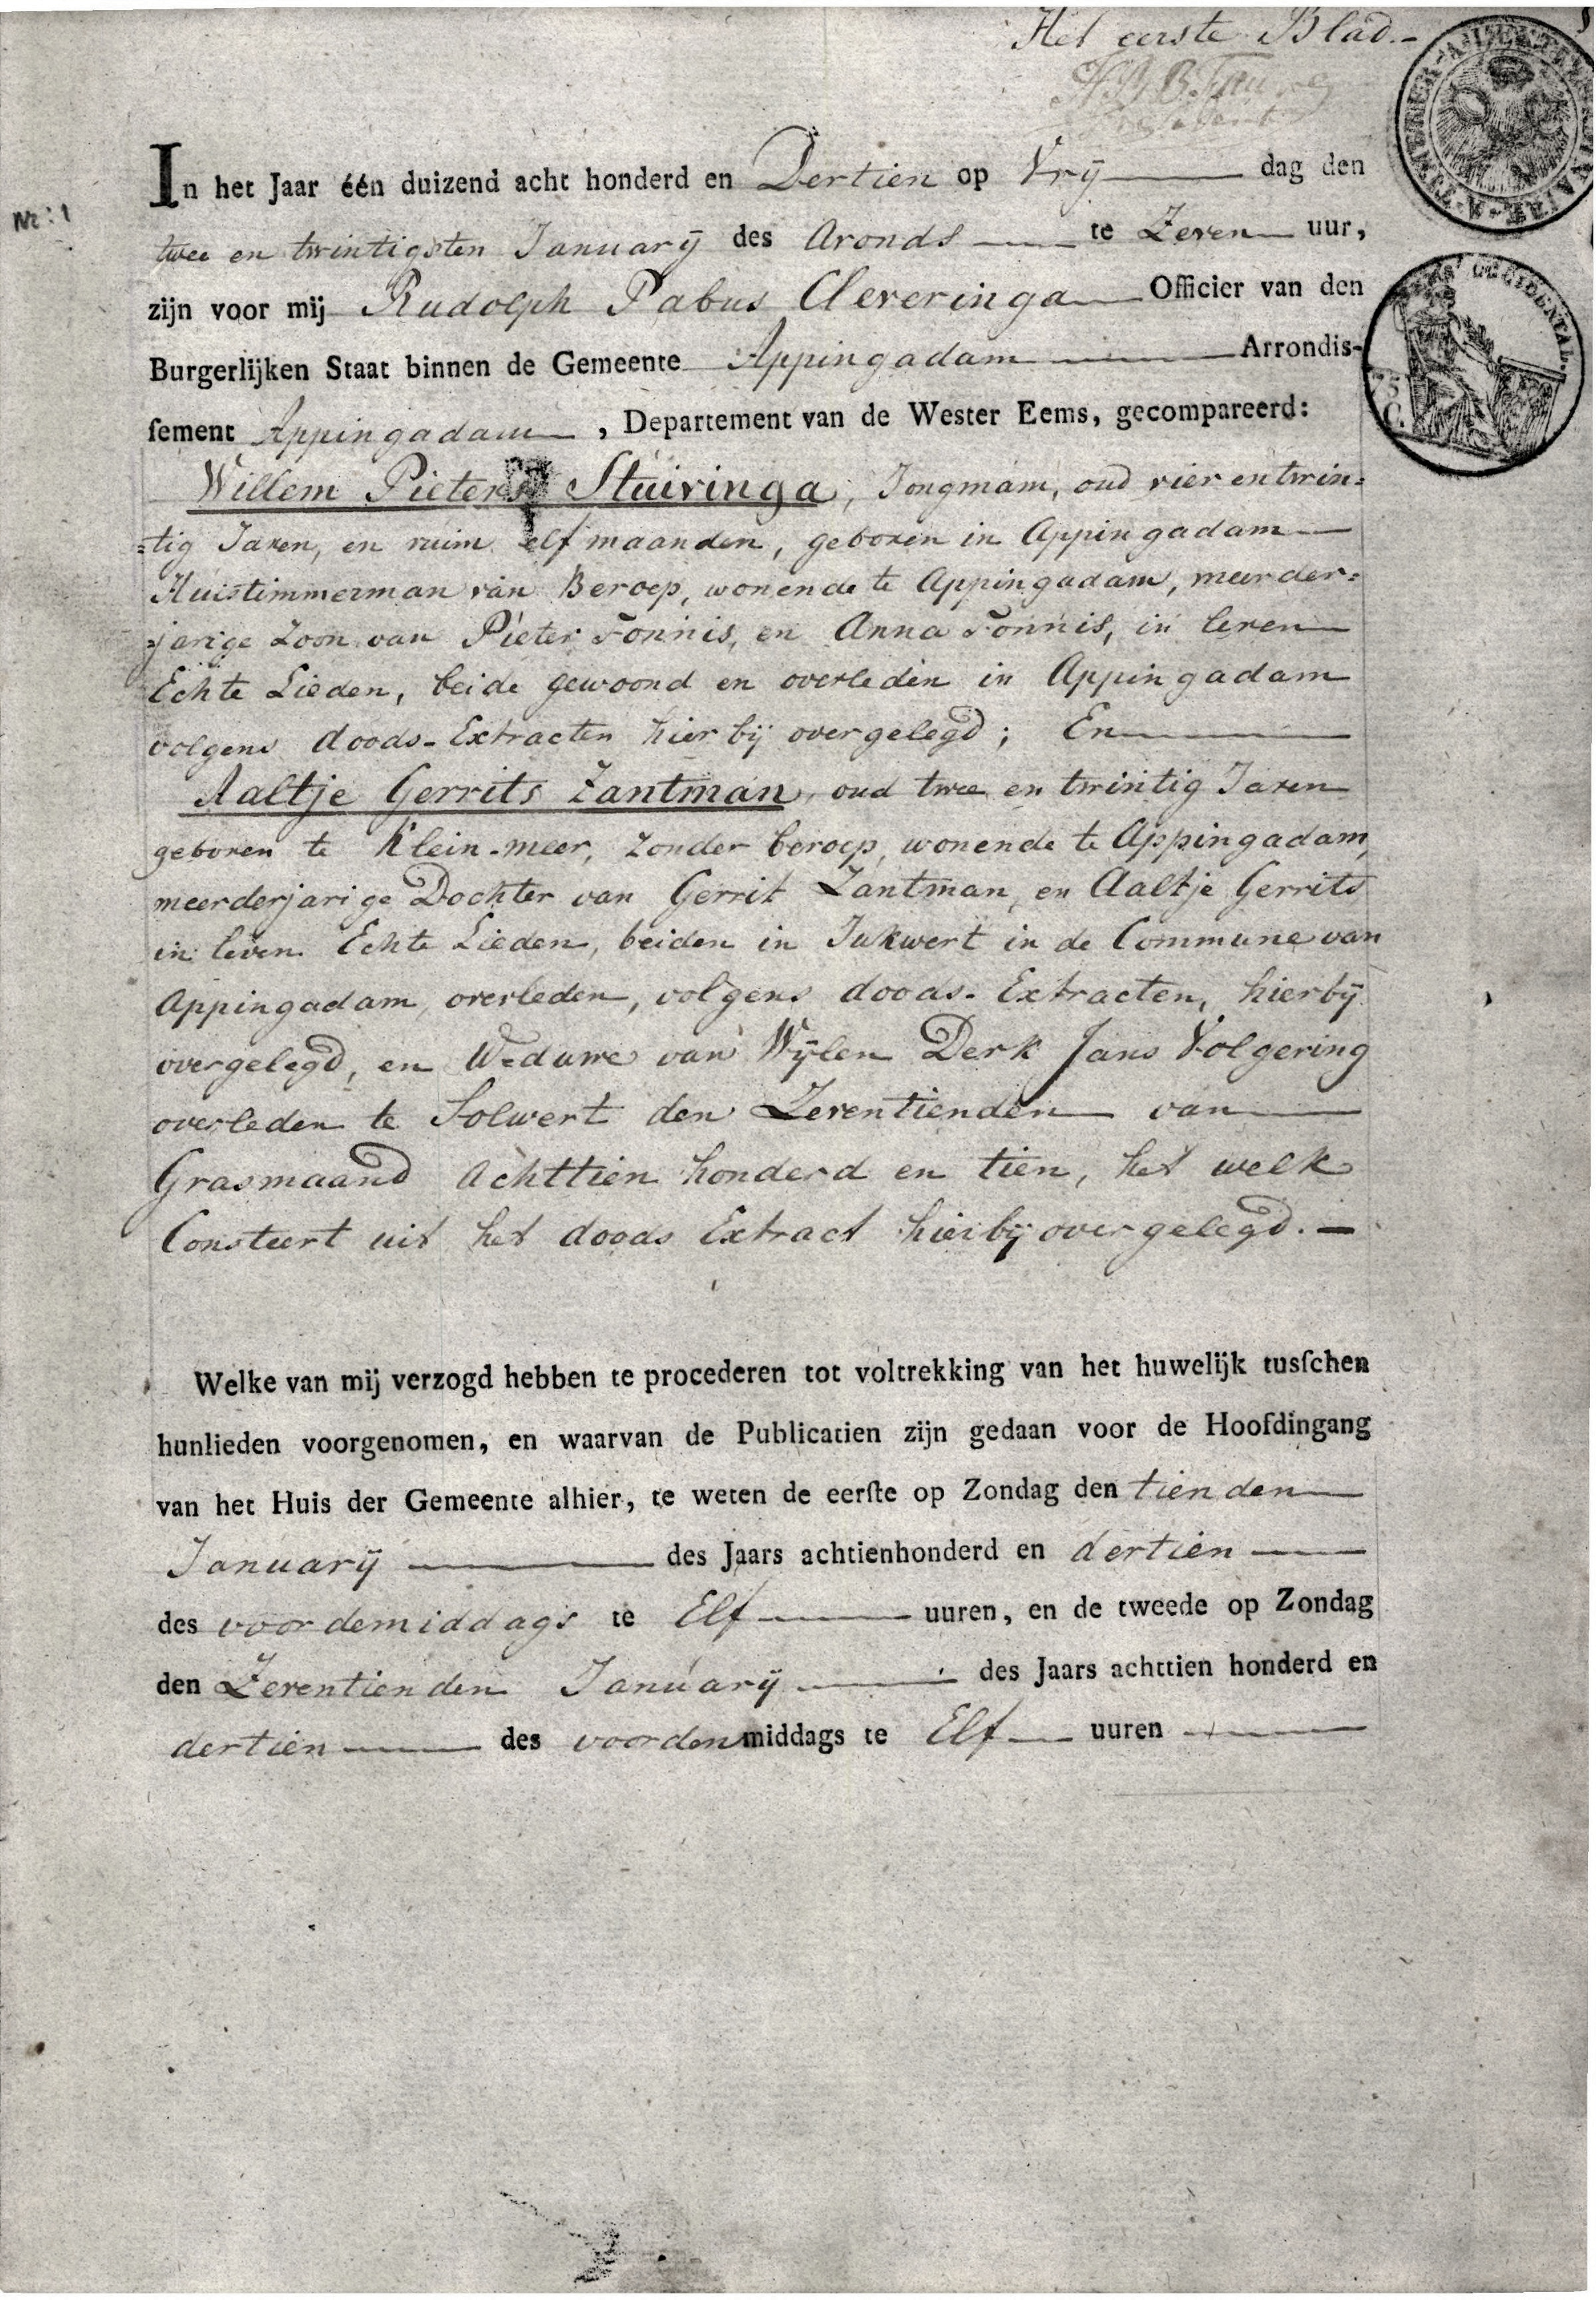 Het eerste Blad.-
In het Jaar één duizend acht honderd en Dertien op Vrij dag den
Nr: 1
twee en twintigsten Januarij des Avonds te Zeven uur,
zijn voor mij Rudolph Pabus Cleveringa Officier van den
Burgerlijken Staat binnen de Gemeente Appingadam Arrondis-
sement Appingadam, Departement van de Wester Eems, gecompareerd:
Willem Pieters Stuivinga, Jongmam, oud vier en twin=
=tig Jaren, en ruim elf maanden, geboren in Appingadam
Huistimmerman van Beroep, wonende te Appingadam, meerder=
=jarige Zoon van Pieter Tonnis, en Anna Tonnis, in leven
Echte Lieden, beide gewoond en overleden in Appingadam
volgens doods-Extracten hier bij overgelegd; En
Aaltje Gerrits Zantman, oud twee en twintig Jaren
geboren te Klein-meer, Zonder beroep, wonende te Appingadam,
meerderjarige Dochter van Gerrit Zantman, en Aaltje Gerrits
in leven Echte Lieden, beiden in Jukwert in de Commune van
Appingadam, overleden, volgens doods-Extracten, hierbij
overgelegd, en Weduwe van Wijlen Derk Jans Volgering
overleden te Solwert den Zeventienden van
Grasmaand Achttien honderd en tien, het welk
Consteert uit het doods Extract hierbij overgelegd.-
Welke van mij verzogd hebben te procederen tot voltrekking van het huwelijk tusschen
hunlieden voorgenomen, en waarvan de Publicatien zijn gedaan voor de Hoofdingang
van het Huis der Gemeente alhier, te weten de eerste op Zondag den tienden
Januarij des Jaars achtienhonderd en dertien
des voordemiddags te Elf uuren, en de tweede op Zondag
den Zeventienden Januarij des Jaars achttien honderd en
dertien des voordenmiddags te Elf uuren